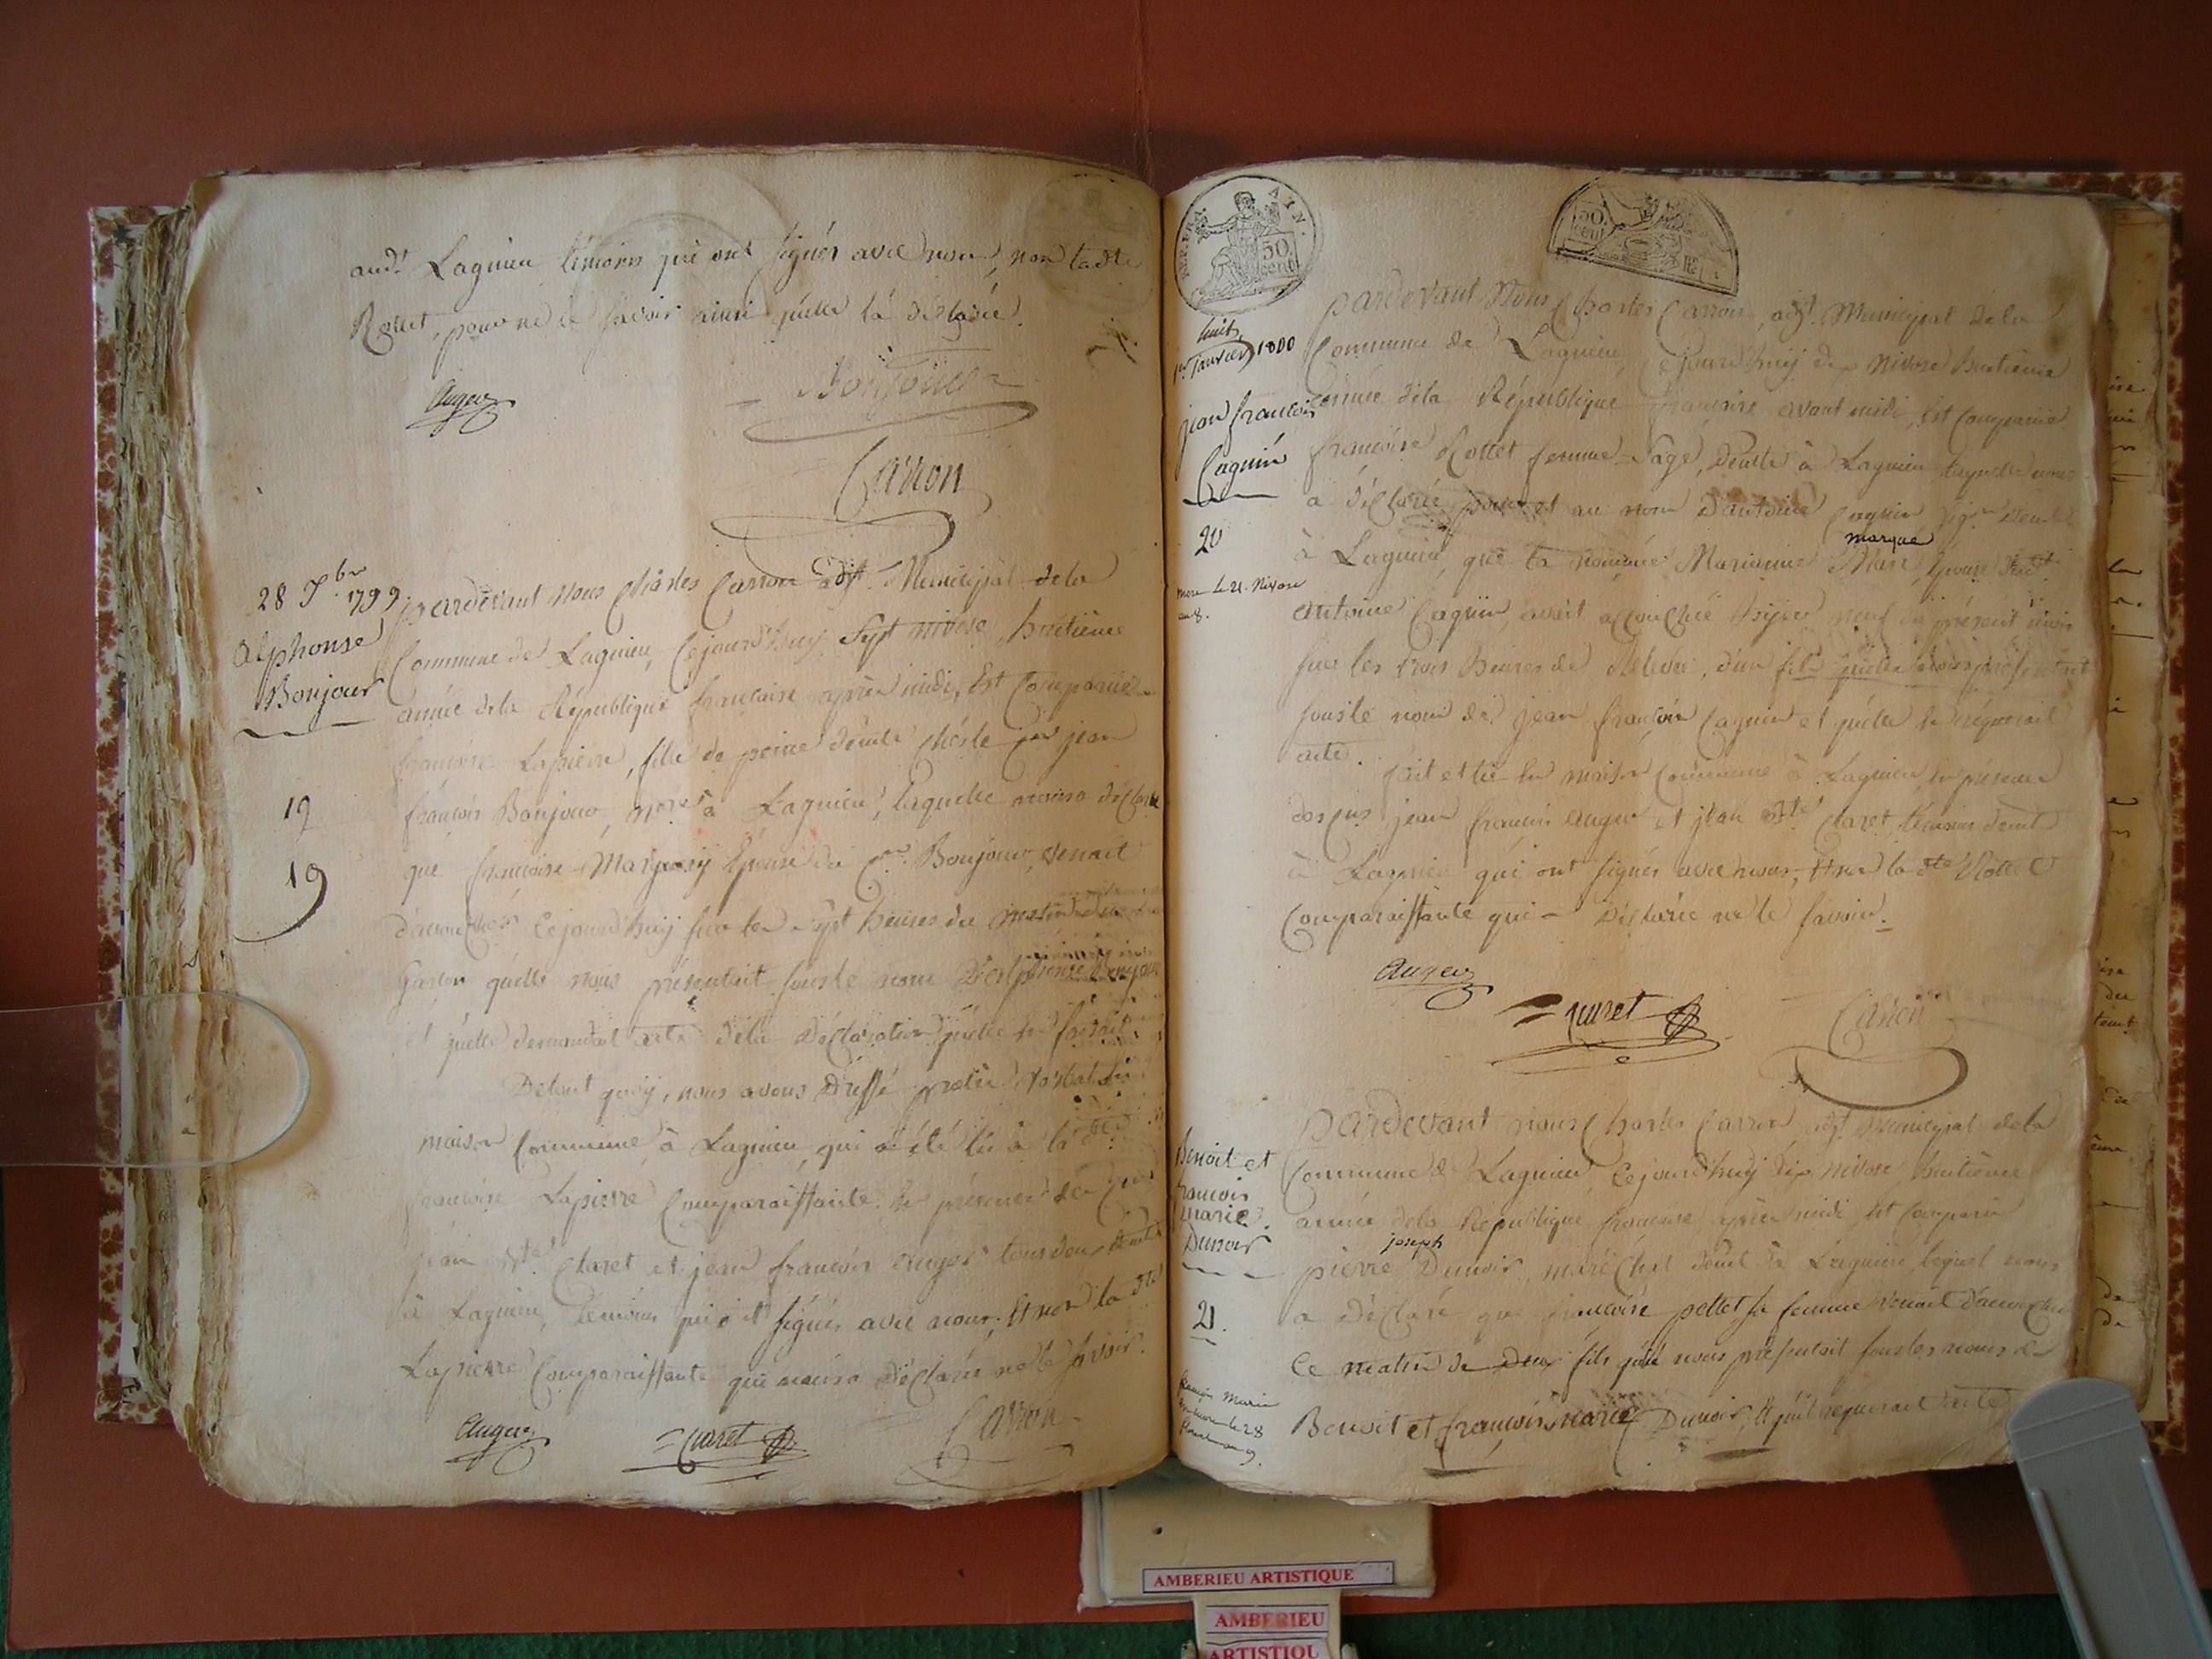 audt Lagnieu témoins qui ont signés avec nous, non ladte
Rollet, pour ne le savoir ainsi qu'elle l'a déclarée.
Auger
Bonjour
Carron
28 Xbre 1799.
Alphonse
Bonjour
19
19
pardevant Nous Charles Carron adjt. Municipal de la
Commune de Lagnieu, Cejourd'huy Sept nivose, huitième
année de la République française après midi, Est Comparue
françoise Lapierre, fille de peine demte chés le Cen jean
françois Bonjour, nore à Lagnieu, laquelle nous a déclaré
que françoise Marguerij Epouse du Cen. Bonjour, venait
d'accoucher Cejourd'huy sur les sept heures du matin
Garçon quelle nous présentait sous le nom D'alphonse Bonjour
et quelle demandait acte de la Déclaration quelle en faisait.
De tout quoy, nous avons Dressé procès verbal en
maison Commune à Lagnieu, qui a été lu à la dte
françoise Lapierre Comparaissante. En présence des Cens
jean Bte Claret et jean françois Auger tous deux demts
à Lagnieu, témoins qui ont signés avec nous; Et non la dte
Lapierre Comparaissante qui nous a Déclarée ne le savoir.
Auger
Claret
Carron
REP. FRA.
AIN.
50
cent
50
cent
huit
1er janvier 1800
jean francois
Cagnin
20
mort le 21. Nivose
an 8.
pardevant Nous Charles Carron, adjt. Municipal de la
Commune de Lagnieu, Cejourd'huy dix Nivose huitième
année de la République française avant midi, Est Comparue
françoise Rollet femme-Sage, Demte à Lagnieu laquelle nous
a déclarée pour et au nom D'antoine Cagnin vign demt
marque
à Lagnieu, que la nommée Marianne Mare, Epouse dudt
antoine Cagnin, avait accouchée hyer neuf du présent mois
sur les trois heures de relevée, d'un fils quelle nous présentait
sous le nom de jean françois Cagnin et quelle en requérait
acte.
fait et lu en maison Commune à Lagnieu, En présence
des Cens jean francois Auger et jean Bte Claret témoins demts
à Lagnieu qui ont signés avec nous, Et non la dte Rollet
Comparaissante qui a Déclarée ne le savoir.
Auger
Claret
Carron
Benoit et
francois
marie
Dunoir
21.
françois Marie
le 28
9.
Pardevant nous Charles Carron, adjt. Municipal de la
Commune de Lagnieu, Cejourd'huy dix Nivose, huitième
année de la République française après midi, Est Comparu
joseph
pierre Dunoir, maréchal demt à Lagnieu, lequel nous
a Déclaré que françoise pettet sa femme venait d'accoucher
Ce matin de Deux fils qu'il nous présentait sous les noms de
Benoit et françois marie Dunoir, Et qu'il requérait acte
AMBERIEU ARTISTIQUE
AMBERIEU
ARTISTIQU